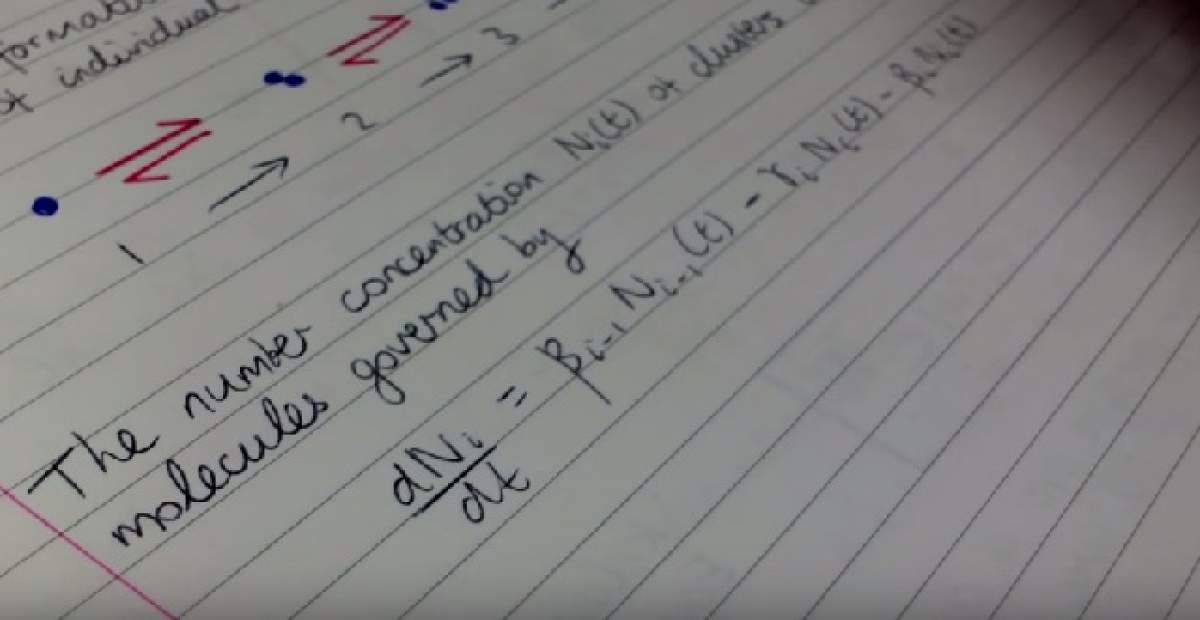 of individual
1 → 2 → 3
The number concentration Nᵢ(t) of clusters
molecules governed by
dNᵢ/dt = βᵢ₋₁ Nᵢ₋₁(t) - γᵢ Nᵢ(t) - βᵢ Nᵢ(t)